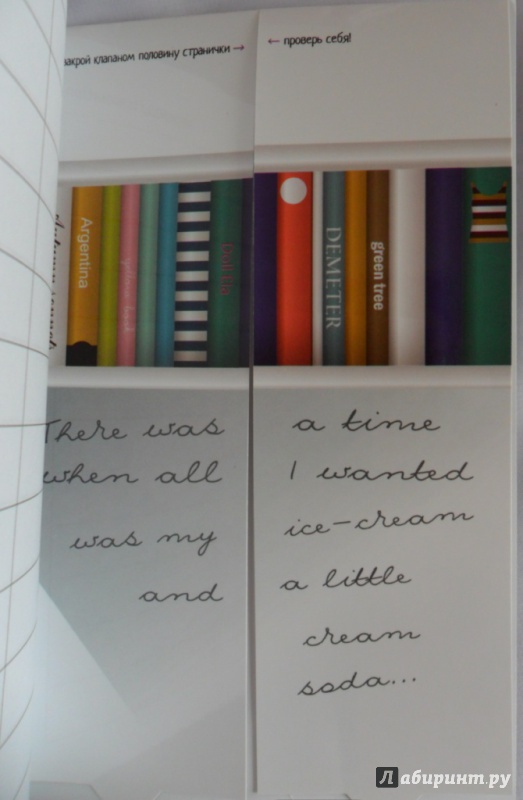 закрой клапаном половину странички →
← проверь себя!
Argentina
DEMETER
green tree
There was a time
when all I wanted
was my ice-cream
and a little
cream
soda...
Лабиринт.ру